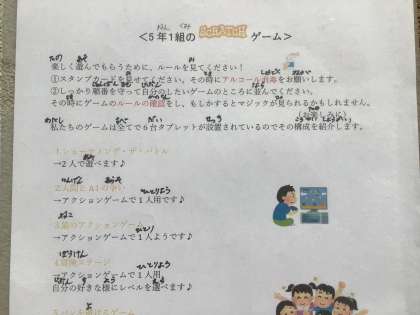 ＜5年1組のSCRATCHゲーム＞
楽しく遊んでもらうために、ルールを見てください！
①スタンプカードを見せてください。その時にアルコール消毒をお願いします。
②しっかり順番を守って自分のしたいゲームのところに並んでください。
その時にゲームのルールの確認をし、もしかするとマジックが見られるかもしれません。
(お楽しみに)
私たちのゲームは全てで6台タブレットが設置されているのでその構成を紹介します。
1.シューティング・ザ・バトル
→2人で遊べます♪
2.人間とAIの争い
→アクションゲームで1人用です♪
3.猫のアクションゲーム
→アクションゲームで1人ようです♪
4.冒険ステージ
→アクションゲームで1人用
自分の好きな様にレベルを選べます♪